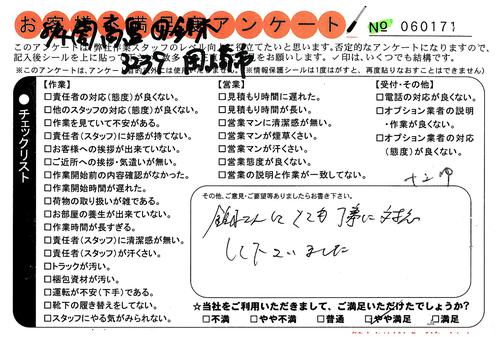 お客様 満 アンケート
№ 060171
このアンケートは弊社作業スタッフのレベル向上に役立てたいと思います。否定的なアンケートになりますので、
記入後シールを上に貼って をお願いします。✓印は、いくつでも結構です。
※このアンケートは、アンケート 以外には使用 ※情報保護シールは1度はがすと、再度貼りなおすことはできません)
3239 岡山市
●チェックリスト
【作業】
□責任者の対応(態度)が良くない。
□他のスタッフの対応(態度)が良くない。
□作業を見ていて不安がある。
□責任者(スタッフ)に好感が持てない。
□お客様への挨拶が出来ていない。
□ご近所への挨拶・気遣いが無い。
□作業開始前の内容確認がなかった。
□作業開始時間が遅れた。
□荷物の取り扱いが雑である。
□お部屋の養生が出来ていない。
□作業時間が長すぎる。
□責任者(スタッフ)に清潔感が無い。
□責任者(スタッフ)が汗くさい。
□トラックが汚い。
□梱包資材が汚い。
□運転が不安(下手)である。
□靴下の履き替えをしてない。
□スタッフにやる気がみられない。
【営業】
□見積もり時間に遅れた。
□見積もり時間が長い。
□営業マンに清潔感が無い。
□営業マンが煙草くさい。
□営業マンが汗くさい。
□営業態度が良くない。
□営業の説明と作業が一致してない。
【受付・その他】
□電話の対応が良くない。
□オプション業者の説明
・作業が良くない。
□オプション業者の対応
(態度)が良くない。
その他、ご意見・ご要望等ありましたらお書き下さい。
全員さんにとても丁寧に対応
して下さいました
☆当社をご利用いただきまして、ご満足いただけたでしょうか?
□不満 □やや不満 □普通 □やや満足 □満足